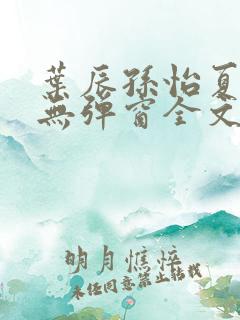 葉辰孫怡夏
無彈窗全文
明月憔悴
未經同意禁止轉載